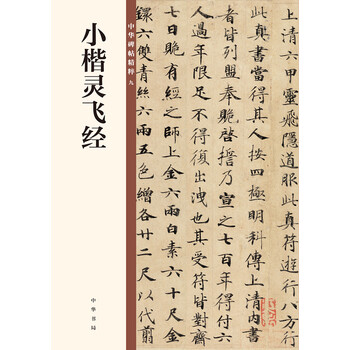 小楷灵飞经
中华书局
中华碑帖精粹 九
上清六甲靈飛隱道服此真符遊行八方行
此真書當得其人按四極明科傳上清內
者皆列盟奉貺啓誓乃宣之七百年得付六
人過年限足不得復出洩也其受符皆對齋
七日貺有經之師上金六兩白素六十尺金
鐶六雙青絲六兩五色繒各廿二尺以代翦